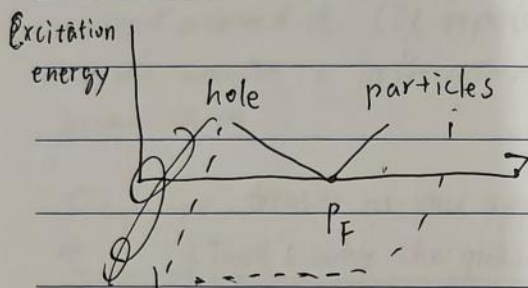 Excitation
energy
hole particles
P_F